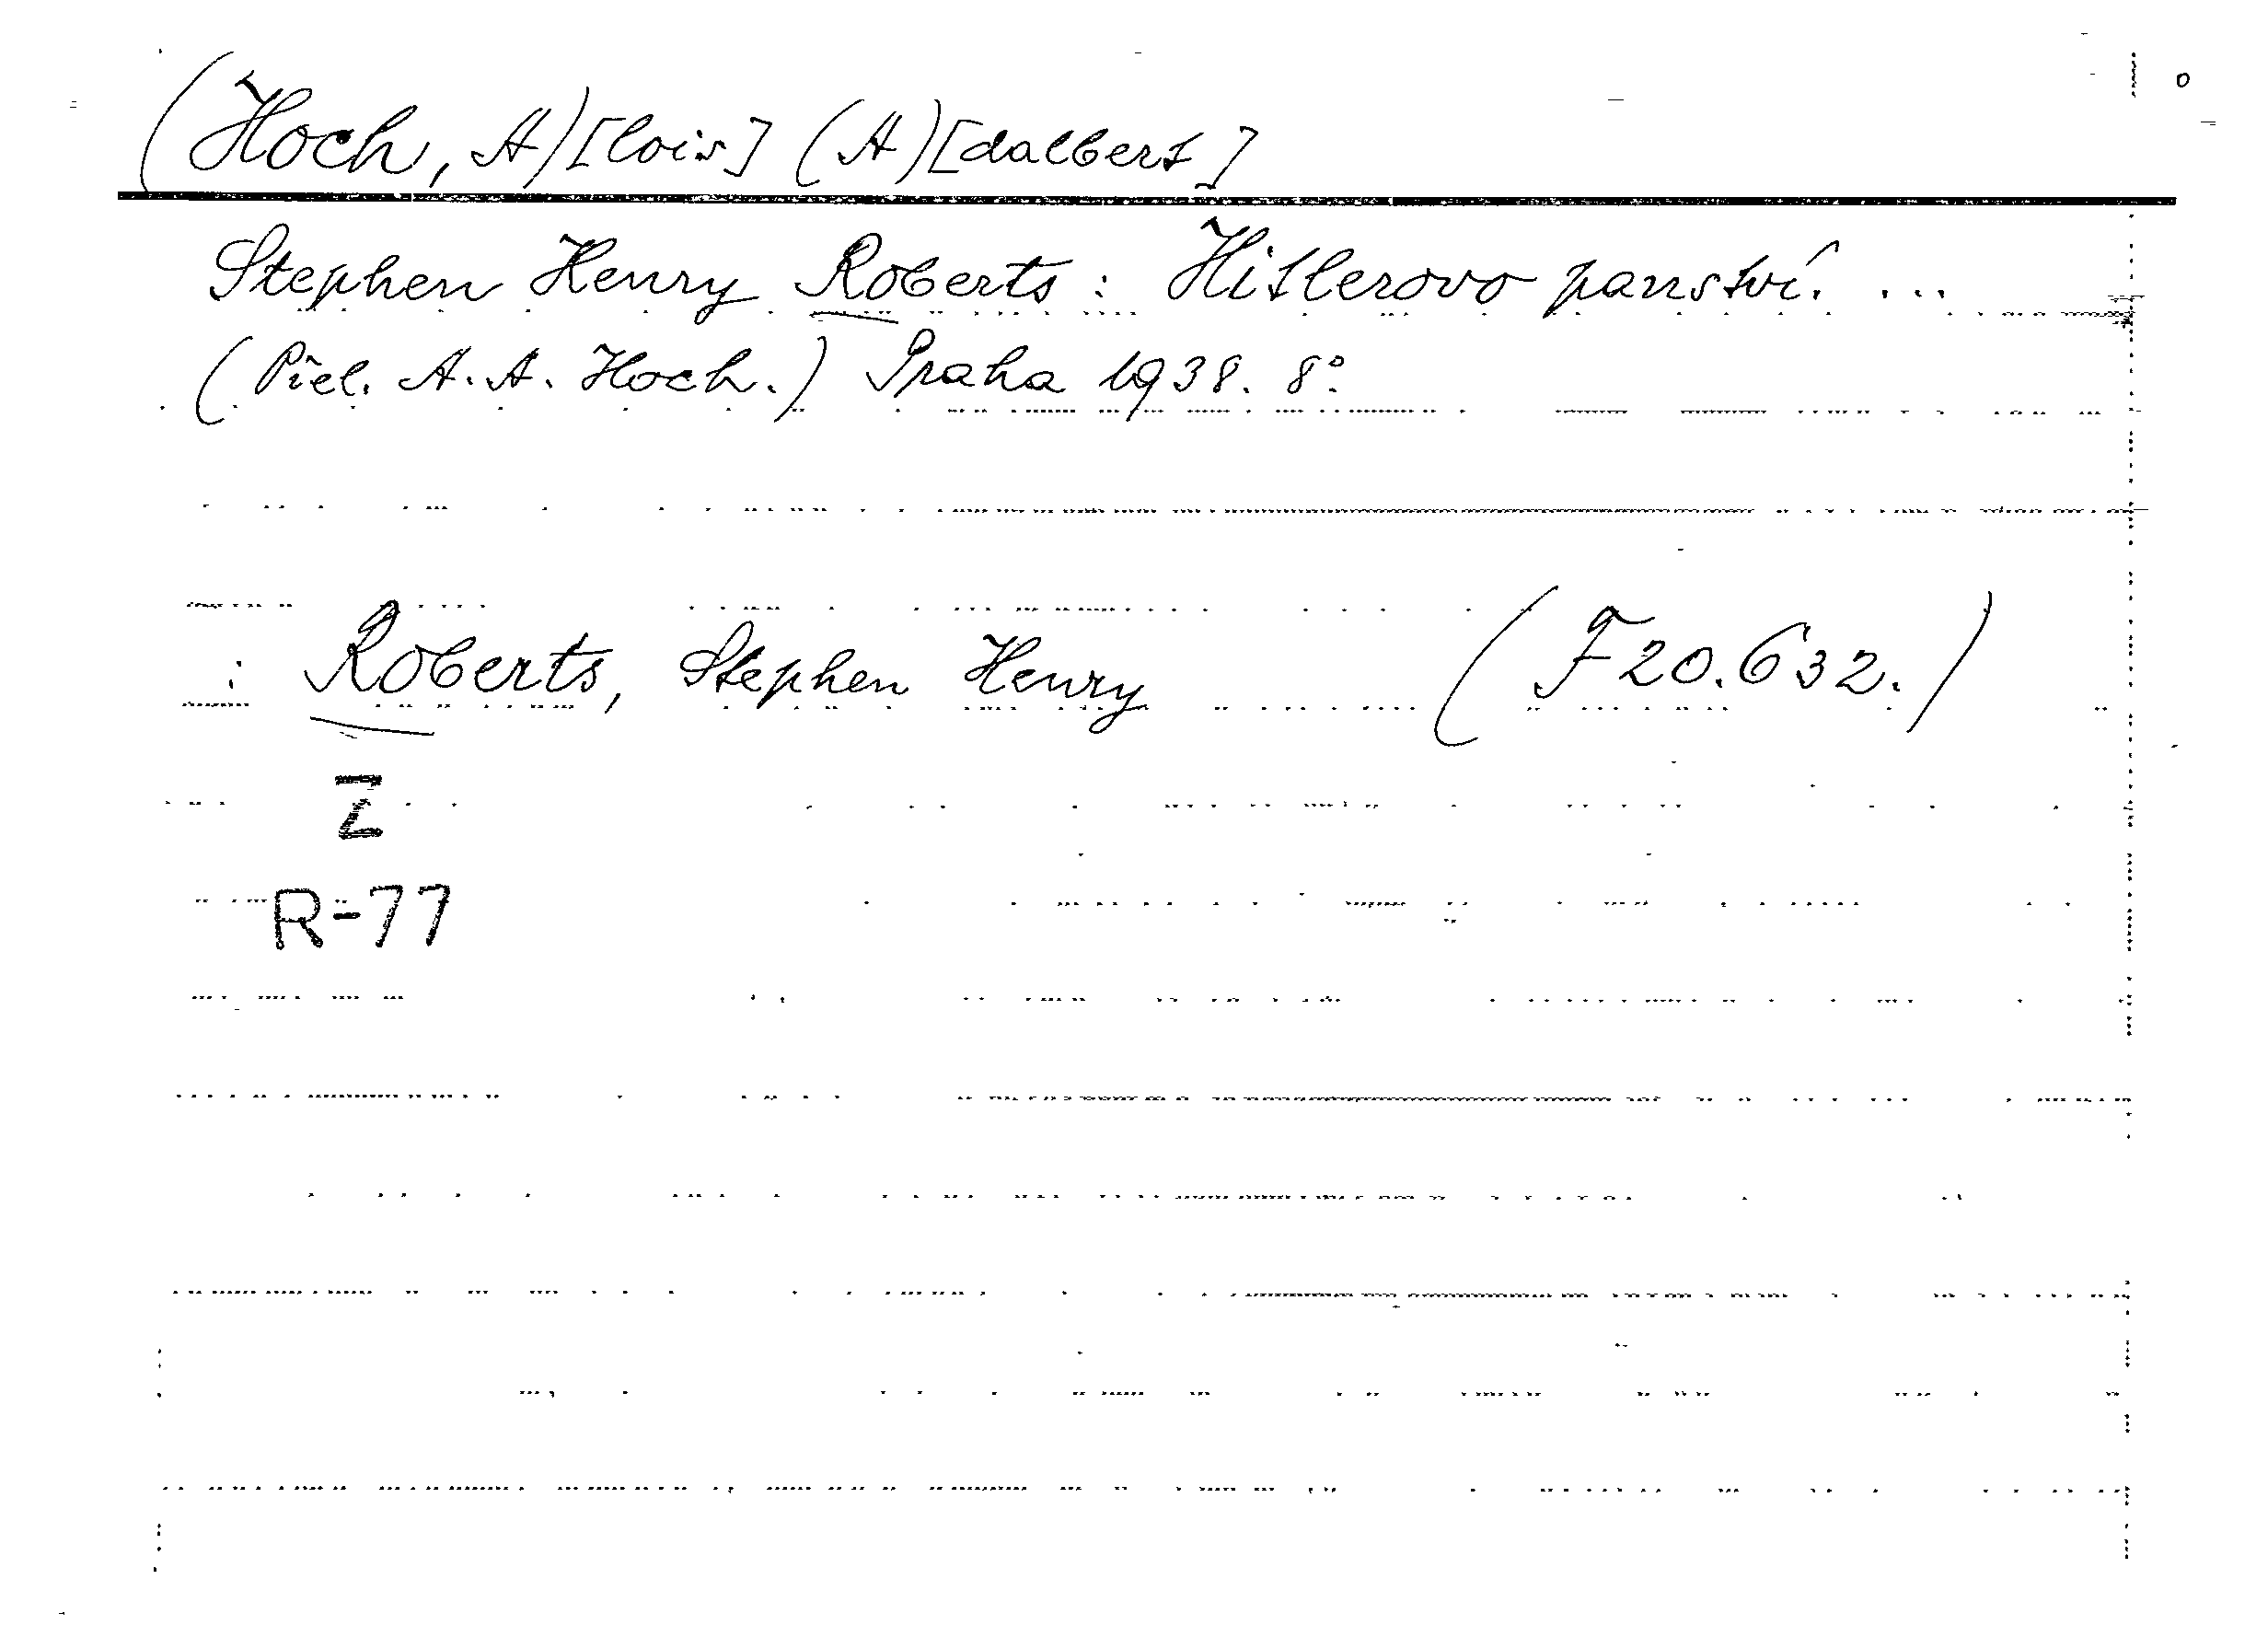 (Hoch, A)[lois] (A)[dalbert]
Stephen Henry Roberts: Hitlerovo panství. ...
(Přel. A. A. Hoch.) Praha 1938. 8°.
: Roberts, Stephen Henry (F 20.632.)
Z
R-77